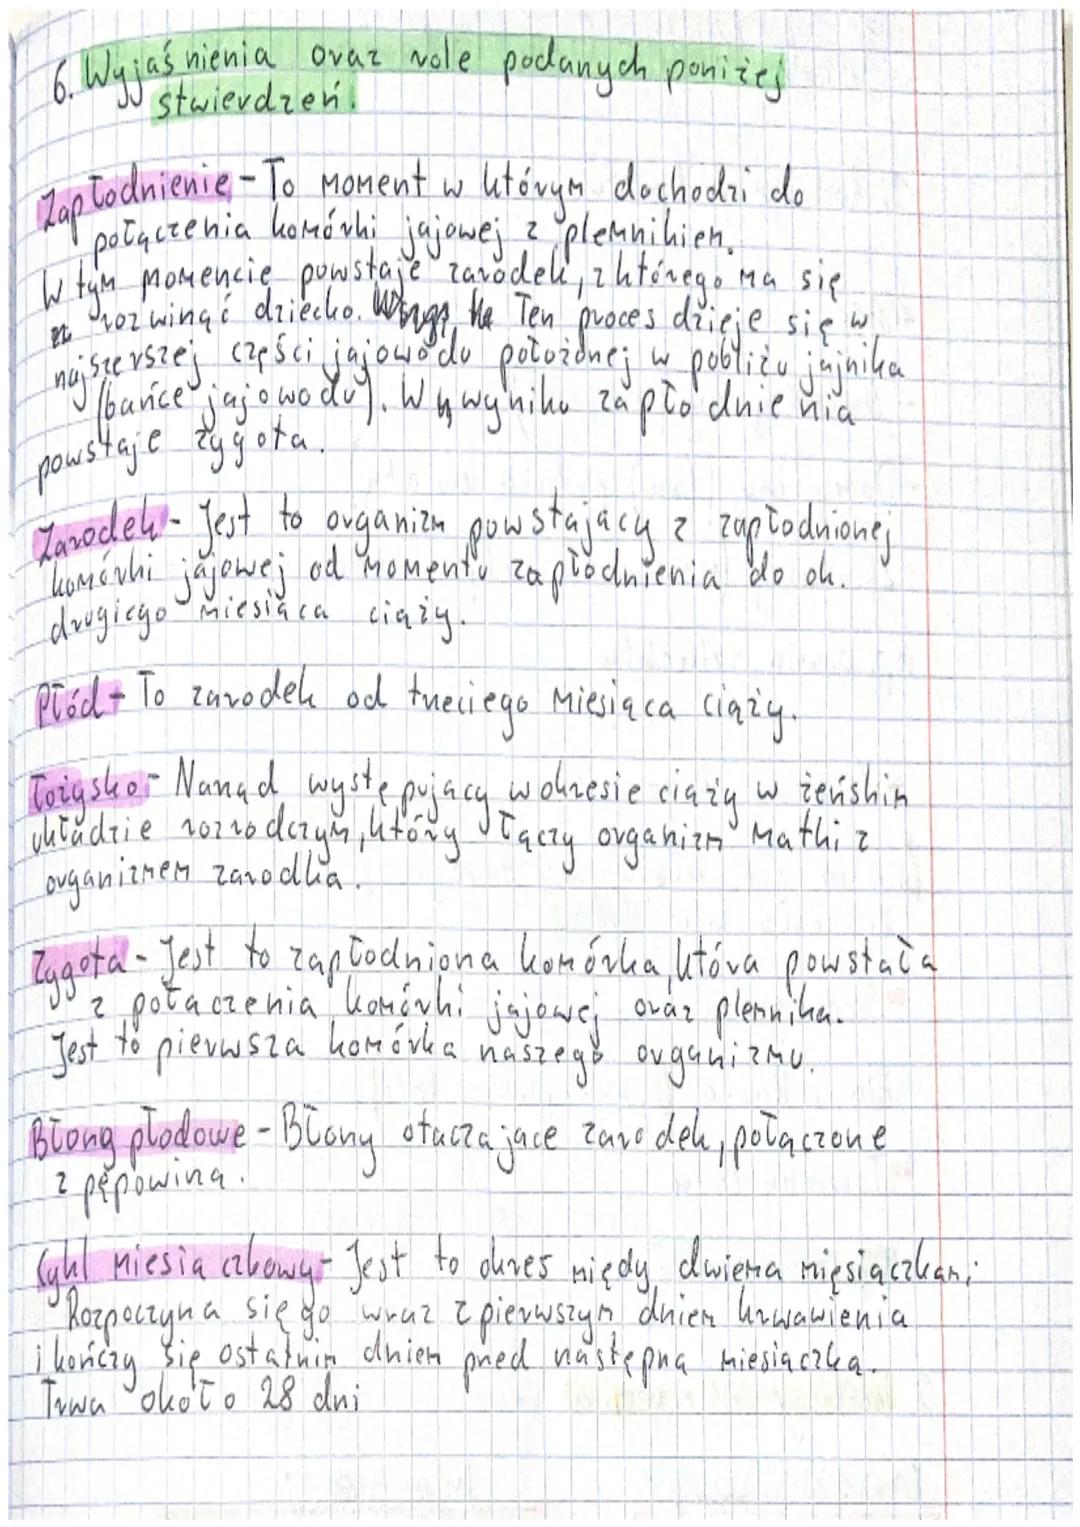 6. Wyjaśnienia oraz role podanych poniżej
stwierdzeń.
Zapłodnienie - To moment w którym dochodzi do
połączenia komórki jajowej z plemnikiem.
W tym momencie powstaje zarodek, z którego ma się
rozwinąć dziecko. Ten proces dzieje się w
najszerszej części jajowodu położonej w pobliżu jajnika
(bańce jajowodu). W wyniku zapłodnienia
powstaje zygota.
Zarodek - Jest to organizm powstający z zapłodnionej
komórki jajowej od momentu zapłodnienia do ok.
drugiego miesiąca ciąży.
Płód - To zarodek od trzeciego miesiąca ciąży.
Łożysko - Narząd występujący w okresie ciąży w żeńskim
układzie rozrodczym, który łączy organizm matki z
organizmem zarodka.
Zygota - Jest to zapłodniona komórka, która powstała
z połaczenia komórki jajowej oraz plemnika.
Jest to pierwsza komórka naszego organizmu.
Błony płodowe - Błony otaczajace zarodek, połączone
z pępowiną.
Cykl miesiączkowy - Jest to okres międy dwiema mięsiączkami
Rozpoczyna się go wraz z pierwszym dniem krwawienia
i kończy się ostatnim dniem przed następną miesiączką.
Trwa około 28 dni